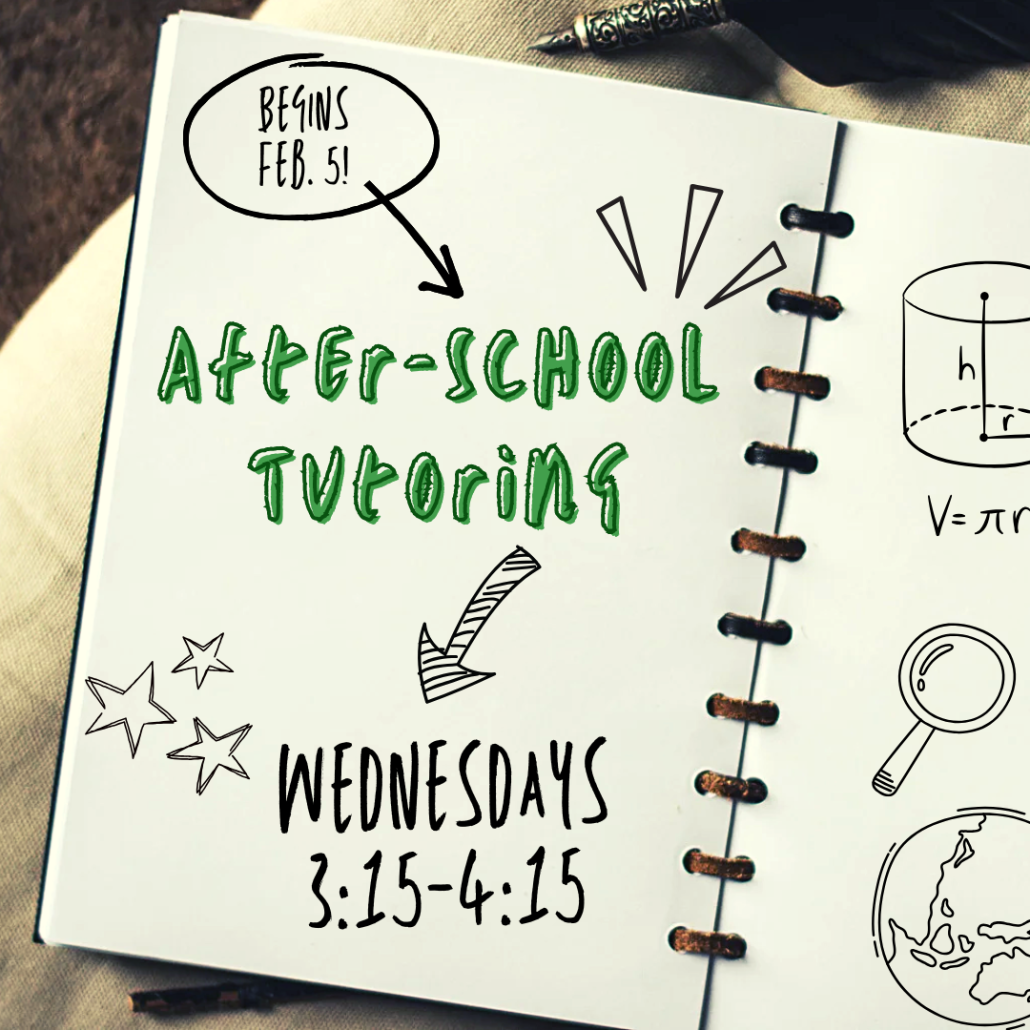 BEGINS
FEB. 5!
AftEr-SCHOOL
TUtoriNG
WEDNESDAYS
3:15-4:15
h
r
V= πr